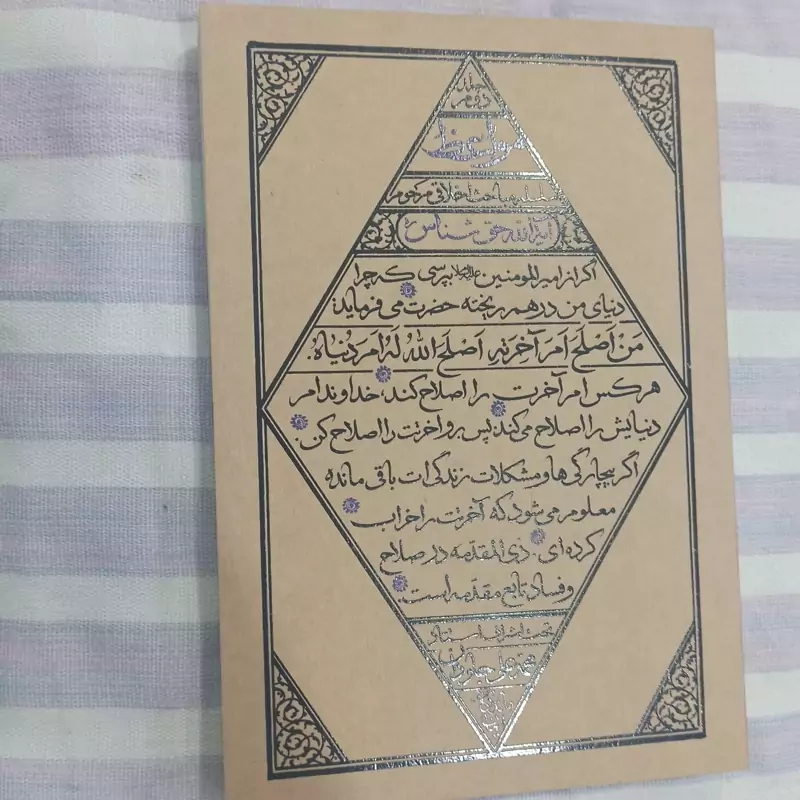 جلد
دوم
مواعظ
سلسله مباحث اخلاقی مرحوم
آیة الله حق شناس ره
اگر از امیرالمومنین علیه‌السلام بپرسی که چرا
دنیای من درهم ریخته حضرت می فرماید:
مَنْ اَصْلَحَ اَمرَ آخِرَتِهِ اَصْلَحَ اللهُ لَهُ اَمرَ دُنیاهُ.
هر کس امر آخرت را اصلاح کند، خداوند امر
دنیایش را اصلاح می کند؛ پس برو اخرتت را اصلاح کن.
اگر بیچارگی ها و مشکلات زندگی ات باقی مانده
معلوم می شود که آخرتت را خراب
کرده ای. ذی المقدمه در صلاح
و فساد تابع مقدمه است.
تحت اشراف استاد
محمد علی جاودان